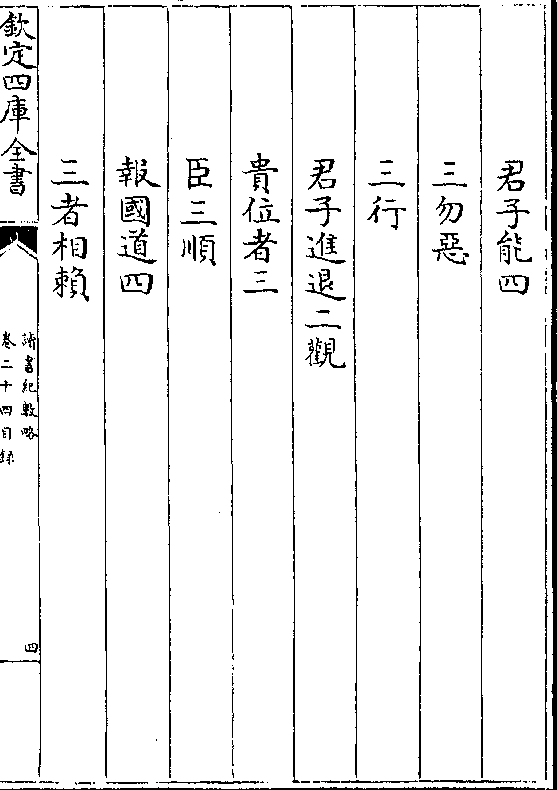 君子能四
三勿惡
三行
君子進退二觀
貴位者三
臣三順
報國道四
三者相賴
欽定四庫全書
讀書紀數略
卷二十四目録
四